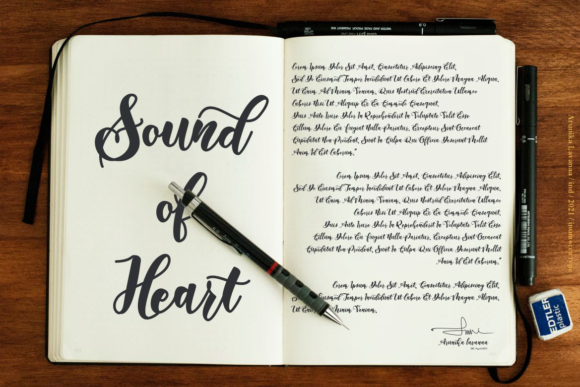 Sound
of
Heart
Lorem Ipsum Dolor Sit Amet, Consectetur Adipiscing Elit,
Sed Do Eiusmod Tempor Incididunt Ut Labore Et Dolore Magna Aliqua,
Ut Enim Ad Minim Veniam, Quis Nostrud Exercitation Ullamco
Laboris Nisi Ut Aliquip Ex Ea Commodo Consequat.
Duis Aute Irure Dolor In Reprehenderit In Voluptate Velit Esse
Cillum Dolore Eu Fugiat Nulla Pariatur, Excepteur Sint Occaecat
Cupidatat Non Proident, Sunt In Culpa Qui Officia Deserunt Mollit
Anim Id Est Laborum."
Lorem Ipsum Dolor Sit Amet, Consectetur Adipiscing Elit,
Sed Do Eiusmod Tempor Incididunt Ut Labore Et Dolore Magna Aliqua,
Ut Enim Ad Minim Veniam, Quis Nostrud Exercitation Ullamco
Laboris Nisi Ut Aliquip Ex Ea Commodo Consequat.
Duis Aute Irure Dolor In Reprehenderit In Voluptate Velit Esse
Cillum Dolore Eu Fugiat Nulla Pariatur, Excepteur Sint Occaecat
Cupidatat Non Proident, Sunt In Culpa Qui Officia Deserunt Mollit
Anim Id Est Laborum."
Lorem Ipsum Dolor Sit Amet, Consectetur Adipiscing Elit,
Sed Do Eiusmod Tempor Incididunt Ut Labore Et Dolore Magna Aliqua,
Ut Minim Veniam,
EDTLER
plastic
2021